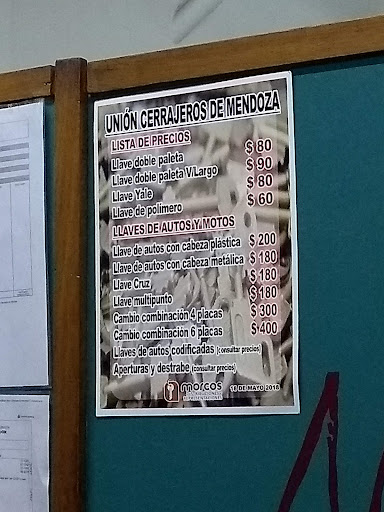 UNIÓN CERRAJEROS DE MENDOZA
LISTA DE PRECIOS
Llave doble paleta $ 80
Llave doble paleta V/Largo $ 90
Llave Yale $ 80
Llave de polimero $ 60
LLAVES DE AUTOS Y MOTOS
Llave de autos con cabeza plástica $ 200
Llave de autos con cabeza metálica $ 180
Llave Cruz $ 180
Llave multipunto $ 180
Cambio combinación 4 placas $ 300
Cambio combinación 6 placas $ 400
Llaves de autos codificadas (consultar precios)
Aperturas y destrabe (consultar precios)
morcos
DISTRIBUCIONES &
REPRESENTACIONES
18 DE MAYO 2018